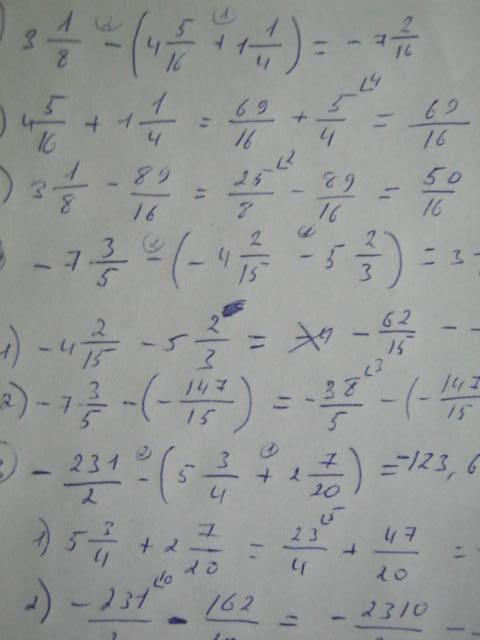 3 1/8 - (4 5/16 + 1 1/4) = - 7 2/16
4 5/16 + 1 1/4 = 69/16 + 5/4 = 69/16
3 1/8 - 89/16 = 25/8 - 89/16 = 50/16
- 7 3/5 - (- 4 2/15 - 5 2/3) = 3
1) - 4 2/15 - 5 2/3 = - 62/15 -
2) - 7 3/5 - (- 147/15) = - 38/5 - (- 147/15
- 231/2 - (5 3/4 + 2 7/20) = -123,6
1) 5 3/4 + 2 7/20 = 23/4 + 47/20 =
2) - 231 - 162 = - 2310 -